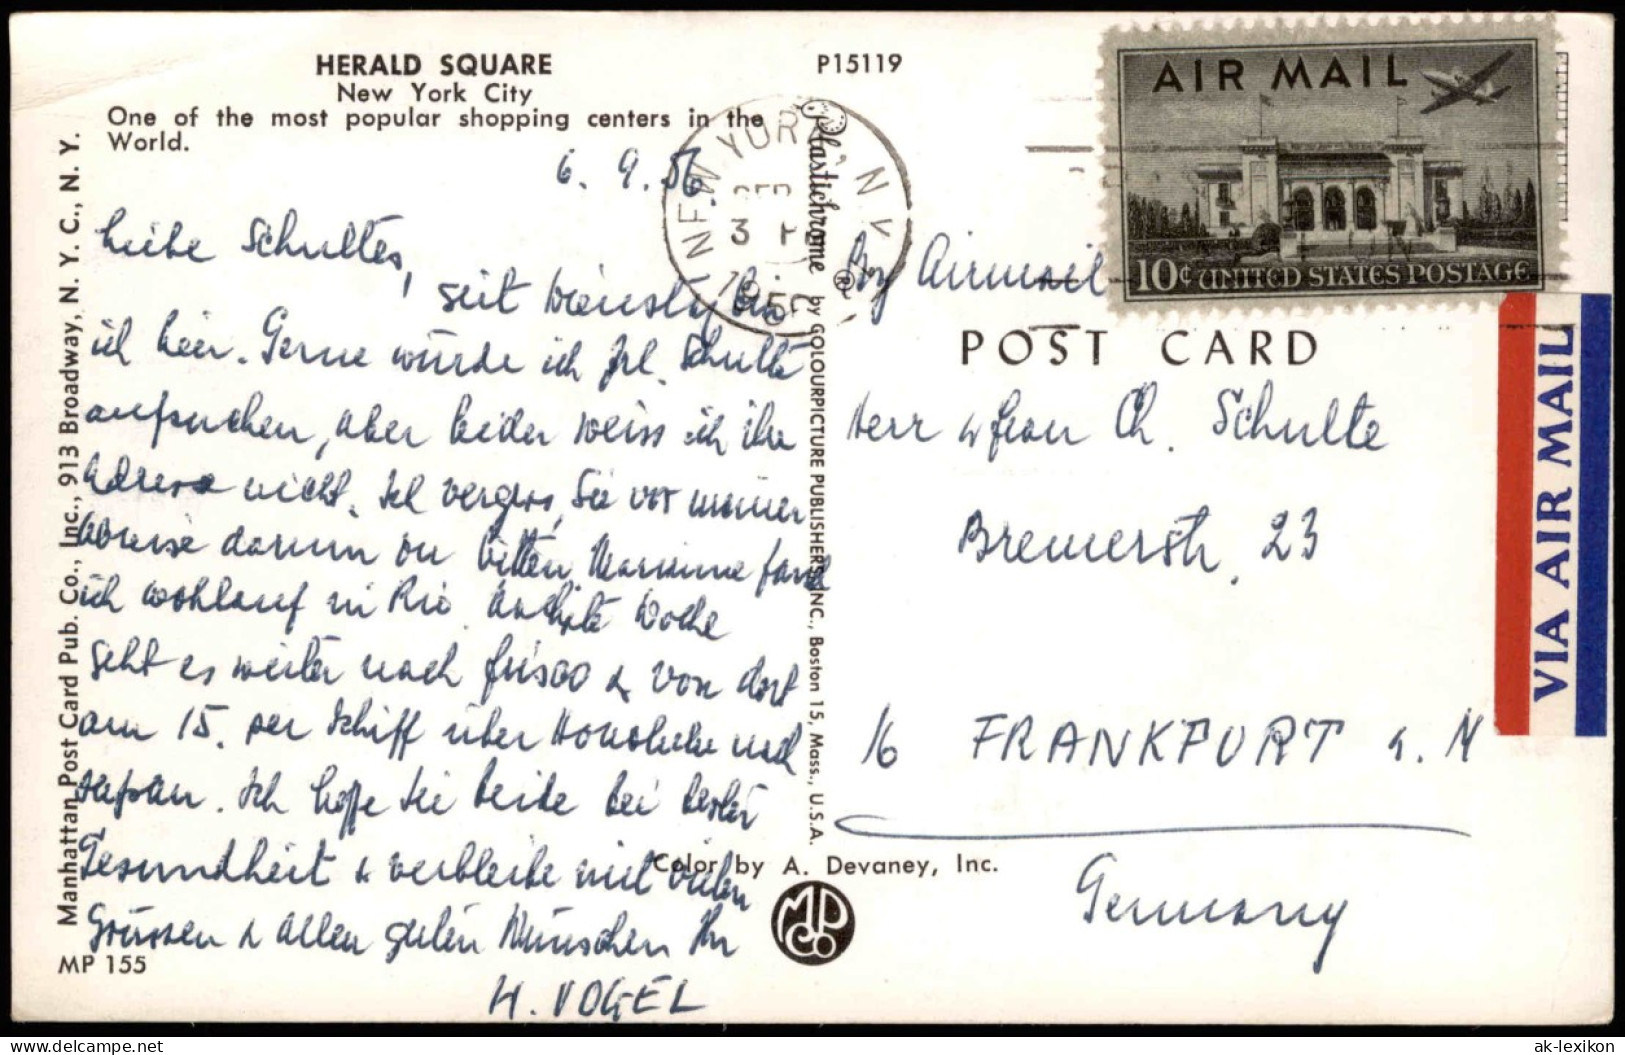 HERALD SQUARE
New York City
One of the most popular shopping centers in the
World.
P15119
6. 9. 56
Liebe Schultes,
seit Dienstag bin
ich hier. Gerne würde ich Frl. Schulte
aufsuchen, aber leider weiss ich ihre
Adresse nicht. Ich vergass, Sie vor meiner
Abreise darum zu bitten. Marianne fand
ich wohlauf in Rio. Nächste Woche
geht es weiter nach Frisco & von dort
am 15. per Schiff über Honolulu nach
Japan. Ich hoffe Sie beide bei bester
Gesundheit & verbleibe mit vielen
Grüssen & allen guten Wünschen Ihr
H. VOGEL
MP 155
Manhattan Post Card Pub. Co., Inc., 913 Broadway, N. Y. C., N. Y.
Plastichrome ® by COLOURPICTURE PUBLISHERS, INC., Boston 15, Mass., U.S.A.
NEW YORK, N.Y.
SEP
3 P
195
AIR MAIL
10¢ UNITED STATES POSTAGE
By Airmail
POST CARD
VIA AIR MAIL
Herr u Frau Ch. Schulte
Bremerstr. 23
16 FRANKFURT a. M
Germany
Color by A. Devaney, Inc.
MPCo
delcampe.net
ak-lexikon